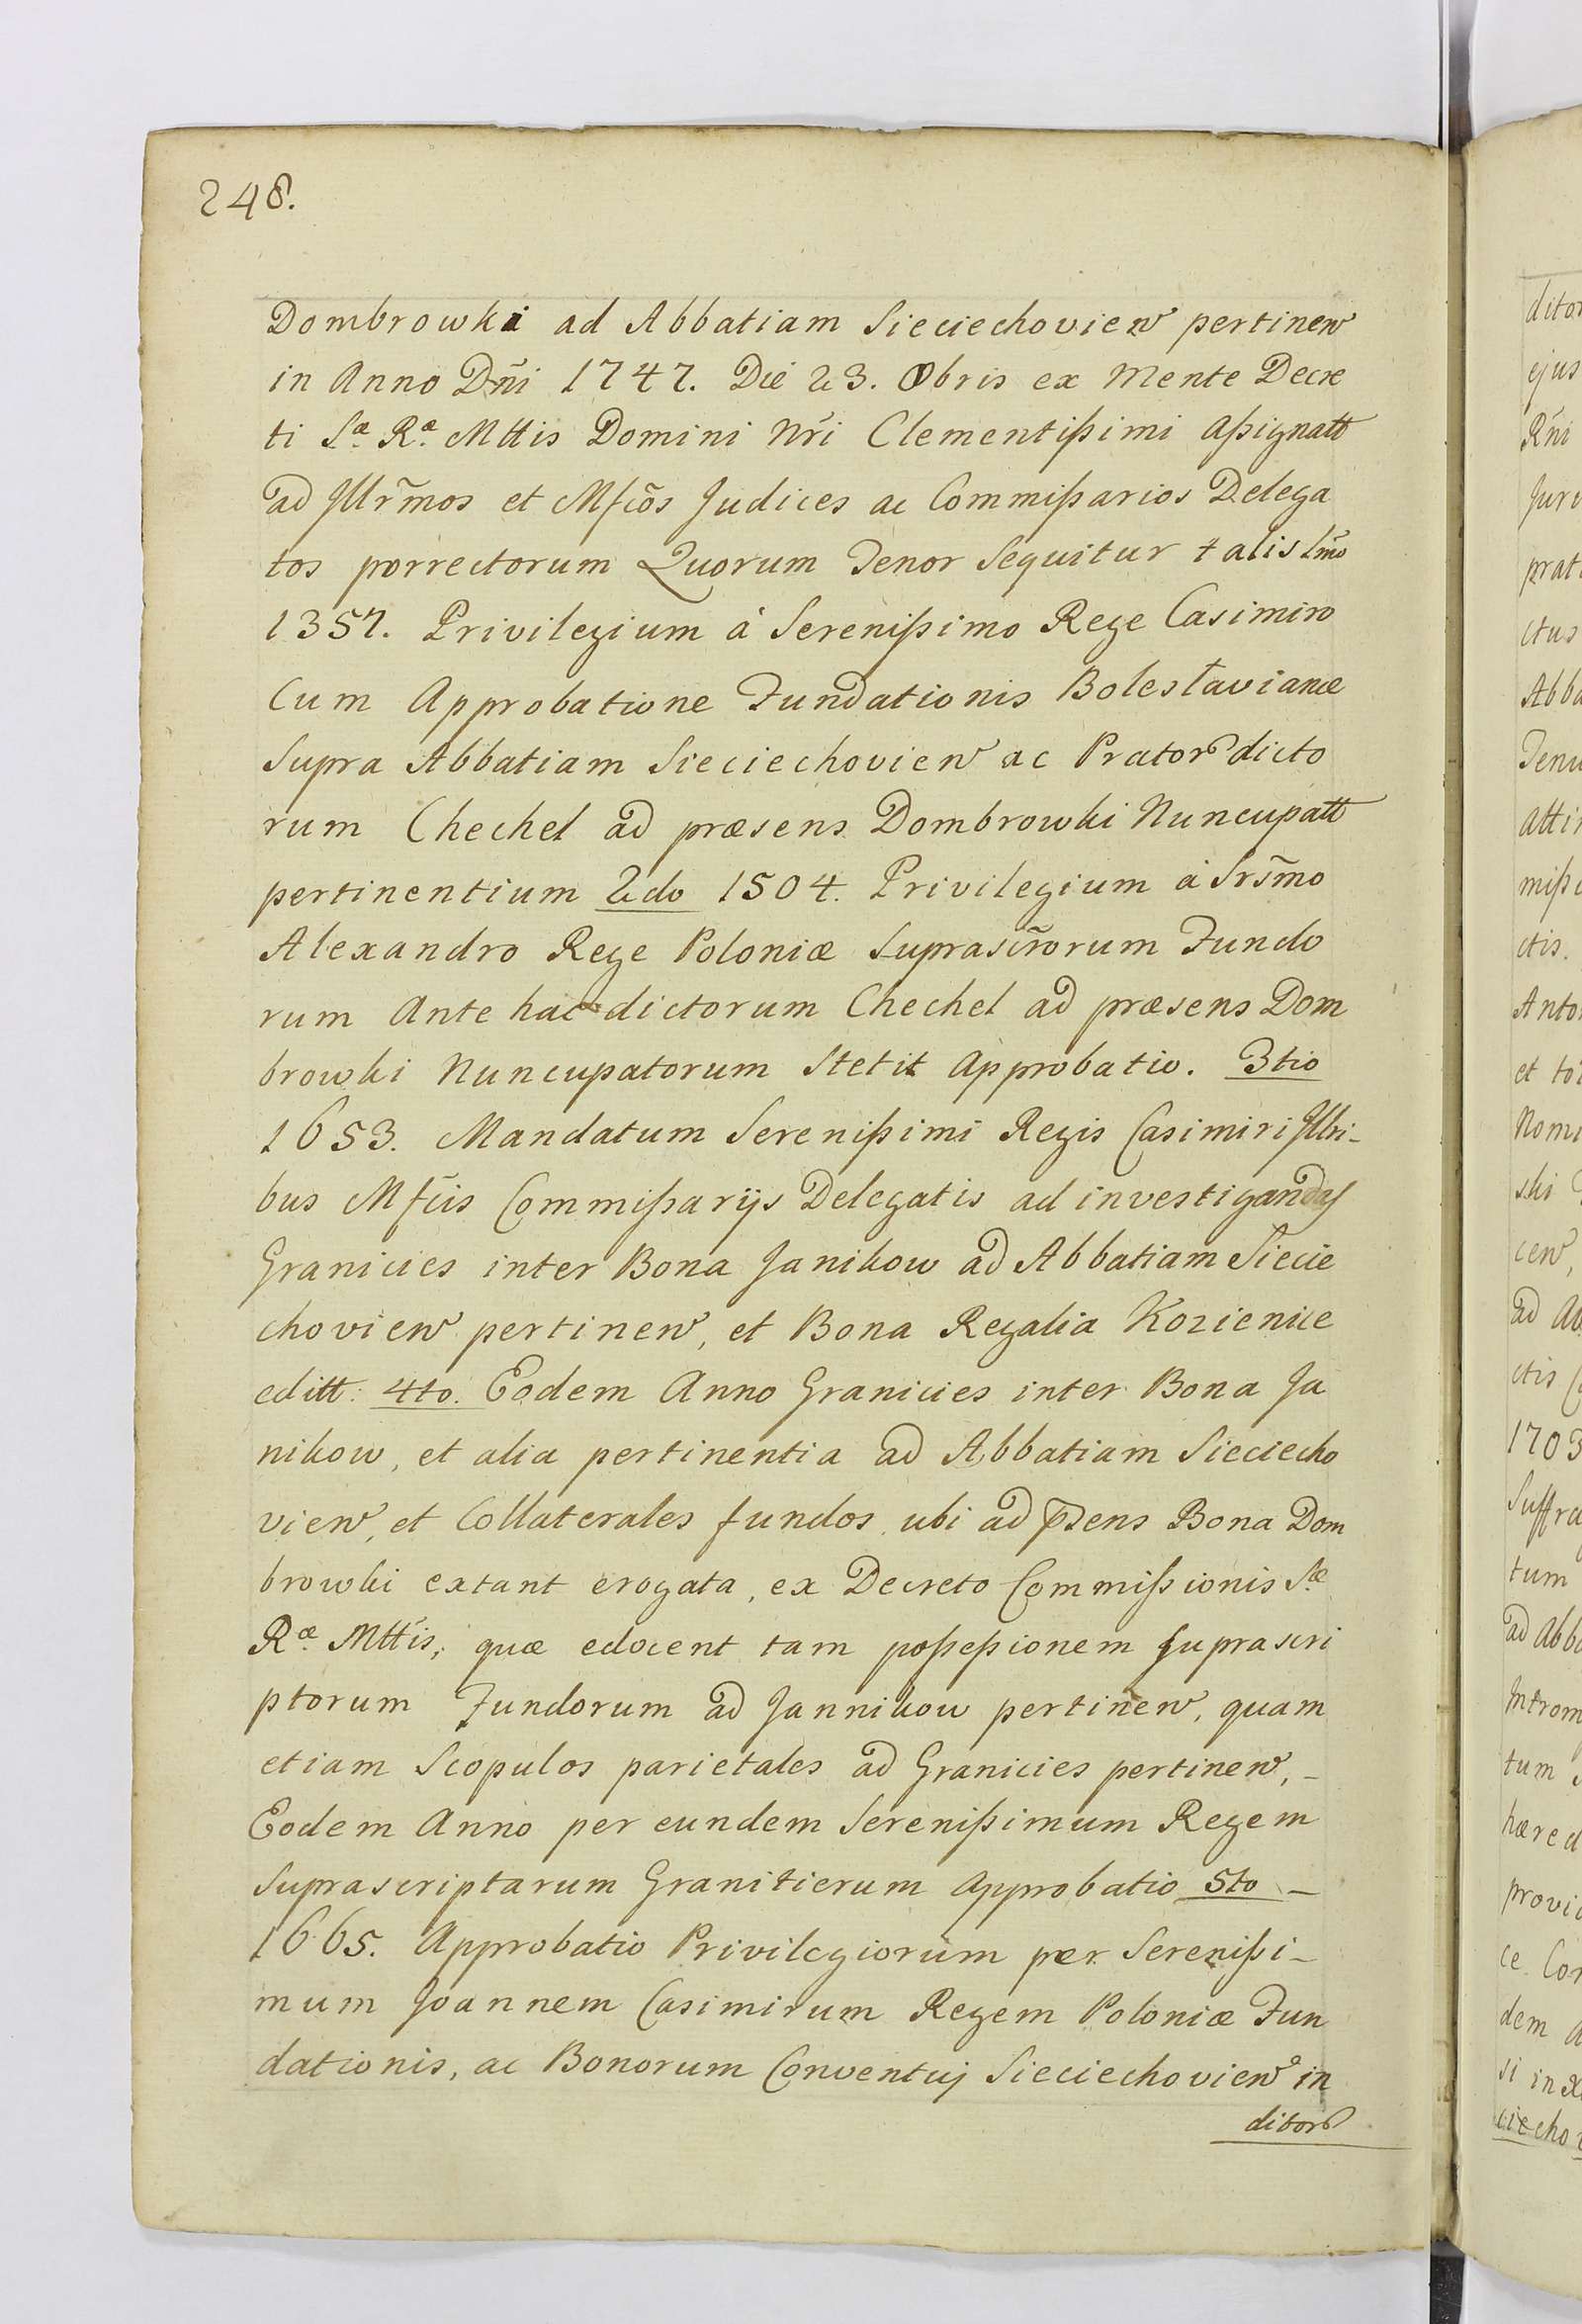 248.
Dombrowki ad Abbatiam Sieciechovien pertinen
in Anno Dñi 1747. Die 23. Obris ex Mente Decre
ti Sæ Ræ Mttis Domini Nři Clementißimi Aßignatt
ad Jllr̃mos et Mfcõs Judices ac Commißarios Delega
tos porrectorum Quorum Tenor Sequitur talis 1mo
1357. Privilegium à Serenißimo Rege Casimiro
Cum Approbatione Fundationis Bolesłavianæ
Supra Abbatiam Sieciechovien ac Prator dicto
rum Chechel ad præsens Dombrowki Nuncupatt
pertinentium 2do 1504. Privilegium à Srs̃mo
Alexandro Rege Poloniæ Suprascr̃orum Fundo
rum Ante hac dictorum Chechel ad præsens Dom
browki Nuncupatorum Stetit Approbatio. 3tio
1653. Mandatum Serenißimi Regis Casimiri Jllri-
bus Mfcis Commißarijs Delegatis ad investigandas
Granicies inter Bona Janikow ad Abbatiam Siecie
chovien pertinen, et Bona Regalia Kozienice
editt: 4to. Eodem Anno Granicies inter Bona Ja
nikow, et alia pertinentia ad Abbatiam Sieciecho
vien, et Collaterales fundos ubi ad p̃sens Bona Dom
browki extant erogata, ex Decreto Commißionis Sæ
Ræ Mttis, quæ edocent tam poßeßionem suprascri
ptorum Fundorum ad Jannikow pertinen, quam
etiam Scopulos parietales ad Granicies pertinen, -
Eodem Anno per eundem Serenißimum Regem
Suprascriptarum Granitierum Approbatio 5to -
1665. Approbatio Privilegiorum per Serenißi-
mum Joannem Casimirum Regem Poloniæ Fun
dationis, ac Bonorum Conventuj Sieciechovien in
ditor